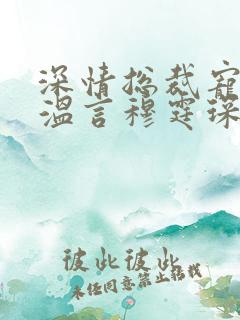 深情总裁宠
温言穆霆琛
彼此彼此
未经同意禁止搭载